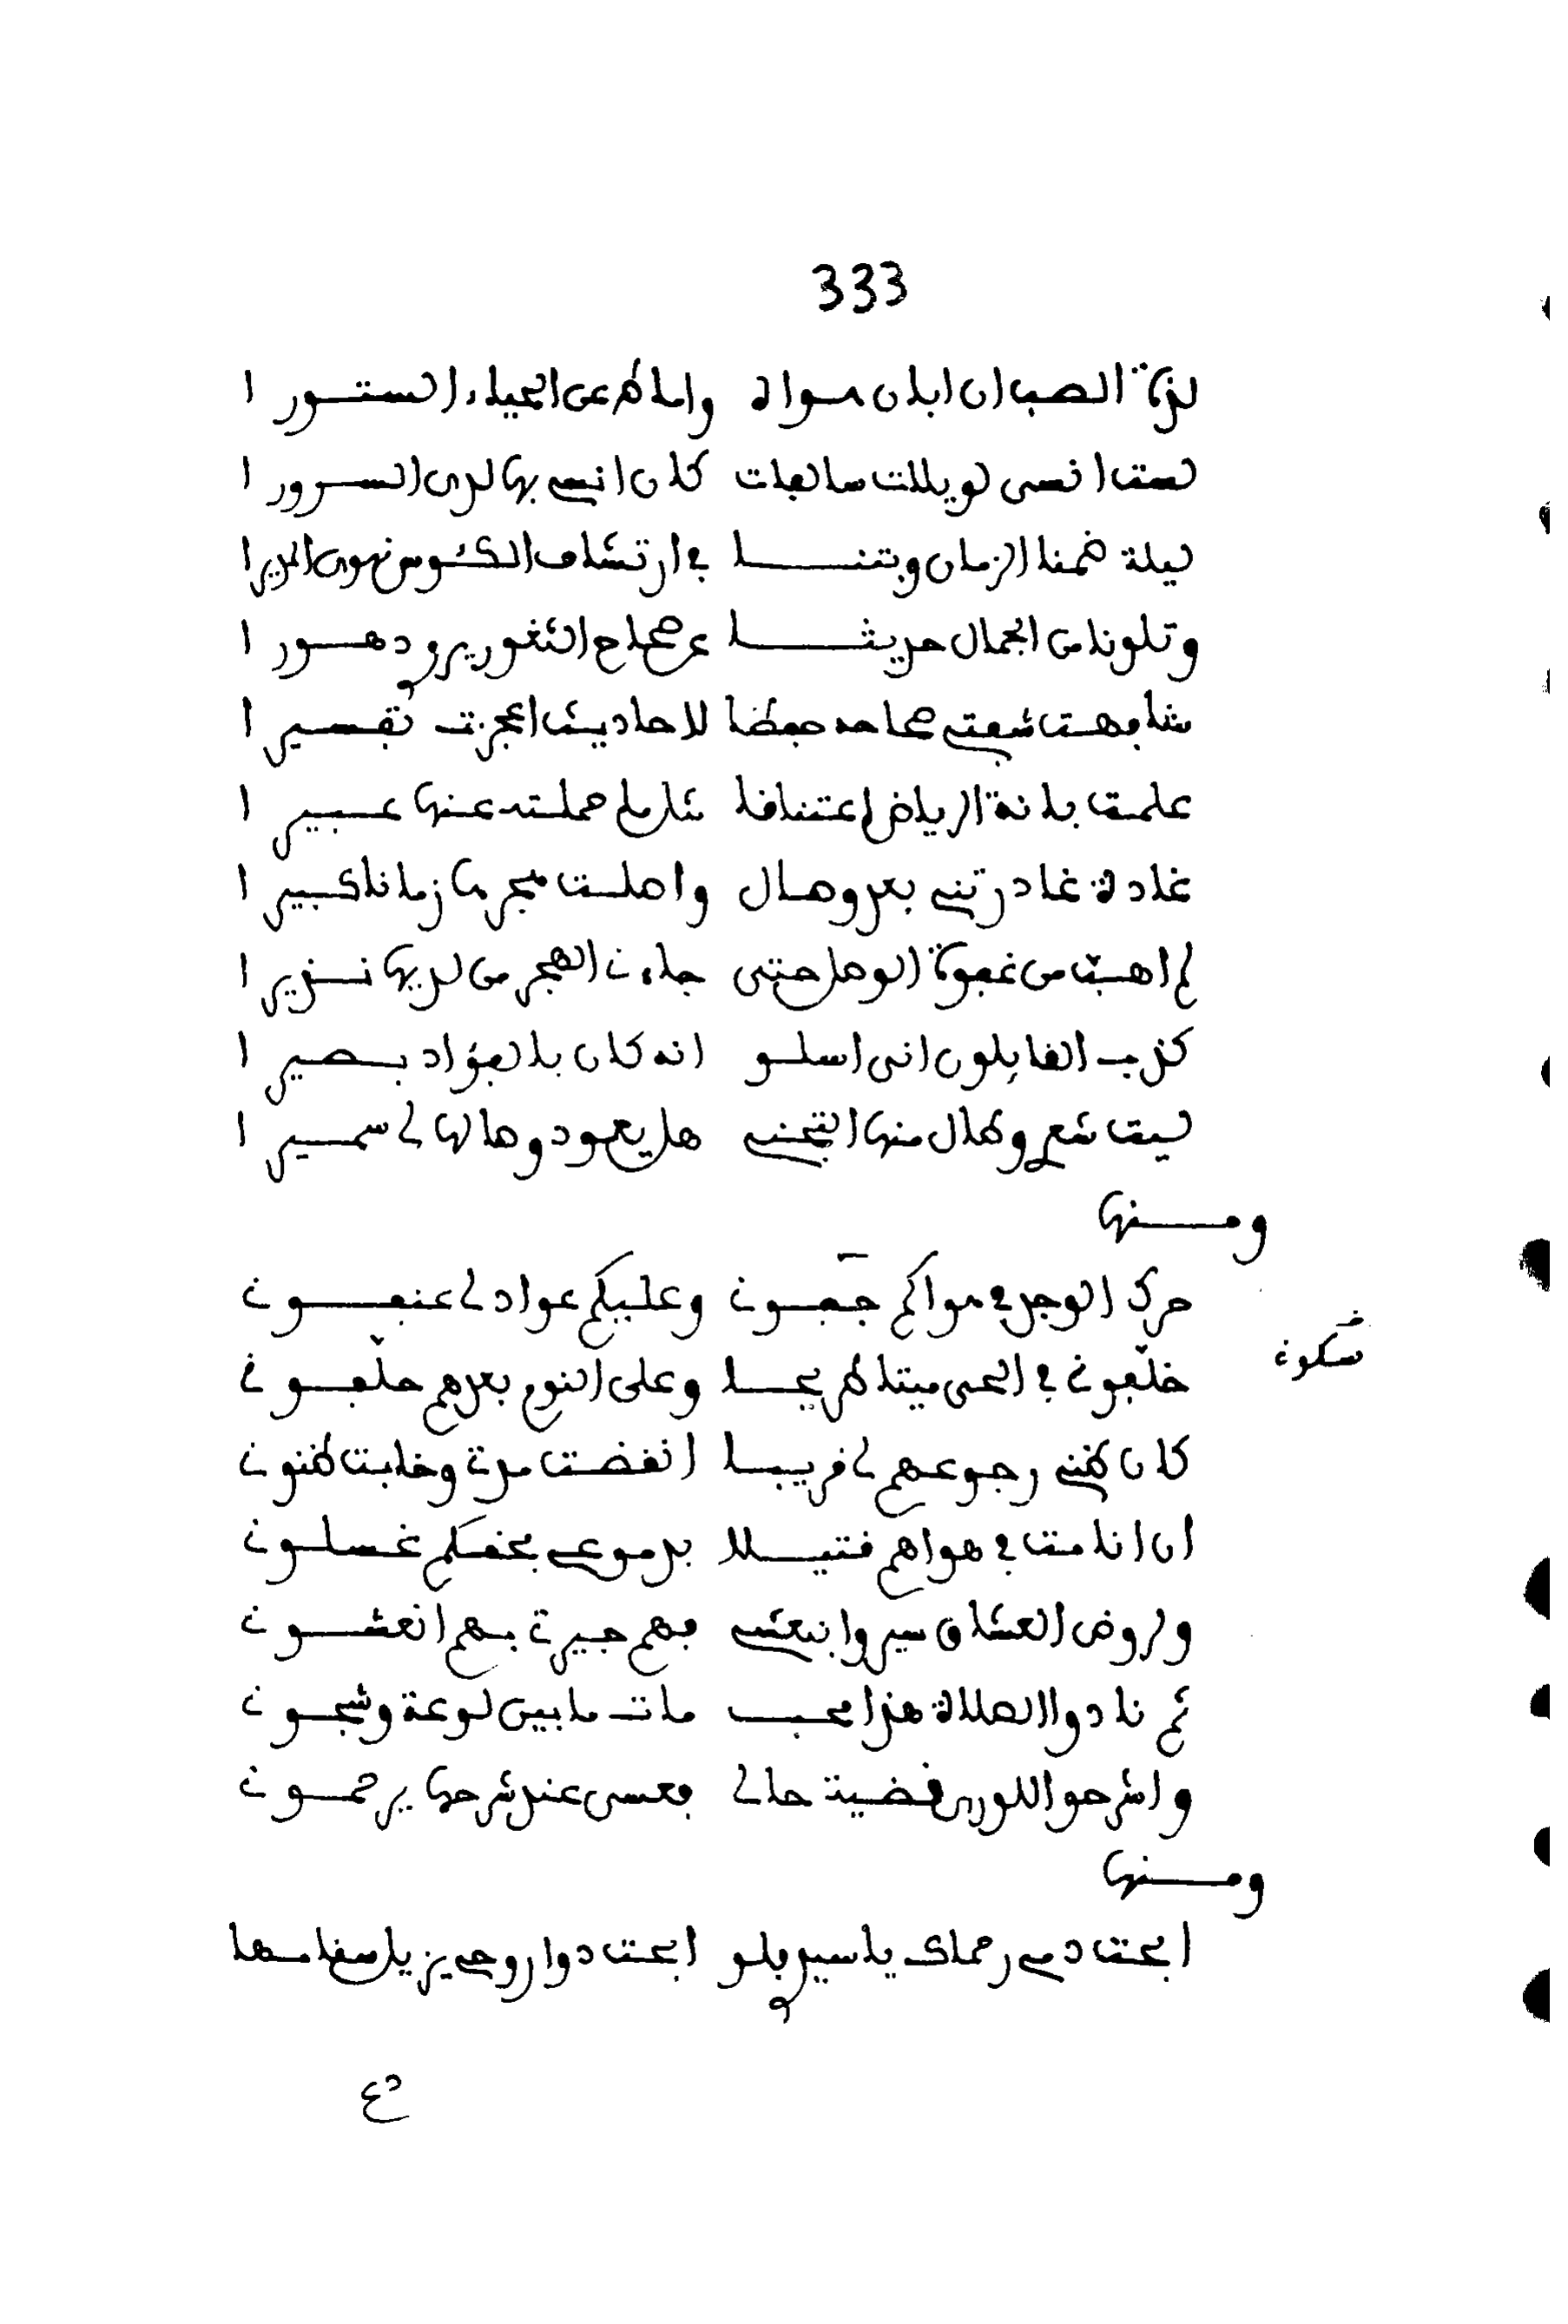 333
لذة الصب ان ابان هواه واماط عن الحياء الستورا
لست انسى لويلات سالفات كان انسي بها لدى السرورا
ليلة ضمنا الزمان وبتنا في ارتشاف الكئوس نهوى المديرا
وتلونا من الجمال حديثا عن صحاح الثغور يروي دهورا
شابهت شفتي صحاحه حفظا لاحاديث اعجزت تفسيرا
علمت بانة الرياض اعتناقا حملته عنها عبيرا
غادة غادرتني بعد وصال واصلت هجرها زمانا كبيرا
لم اهب من غفوة الوصل حتى جاءني الهجر من لديها نذيرا
كذب القايلون اني اسلو انه كان بالفؤاد بصيرا
ليت شعري وطال منها التجني هل يعود وصالها لي سميرا
ومنها
حرك الوجد في هواكم جفوني وعليكم عواذلي عنفوني
سكوني
خلفوني في الحي ميتا طريحا وعلى النوم بعدهم حلفوني
كان ظني رجوعهم لي قريبا انقضت مدتي وخابت ظنوني
ان انا مت في هواهم قتيلا بدموعي بحقكم غسلوني
ولروض العشاق سيروا بنعشي فهم جيرتي بهم انعشوني
ثم نادوا الصلاة هذا محب مات ما بين لوعة وشجون
واشرحوا للورى قضية حالي فعسى عند شرحها يرحموني
ومنها
ابحت دمي رحماك يا سيدي فلو ابحت دوا روحي يزيل سقامها